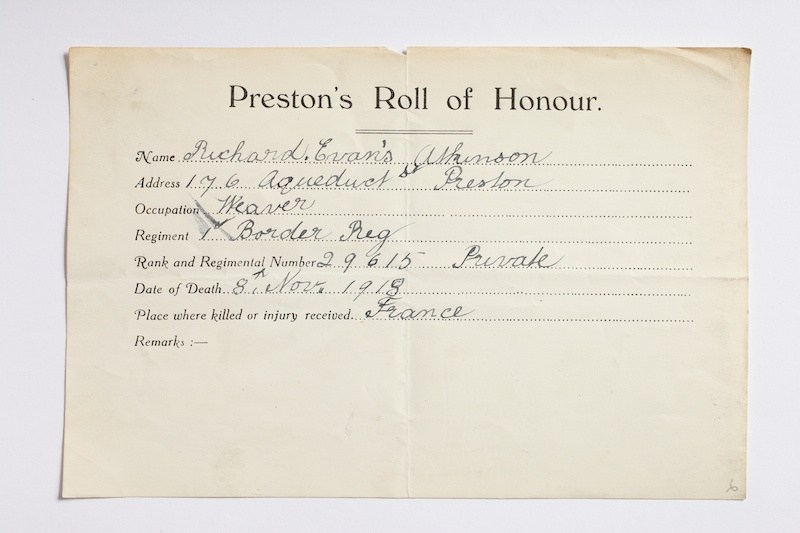 Preston's Roll of Honour.
Name Richard. Evan's Atkinson
Address 176 Aqueduct St Preston
Occupation Weaver
Regiment 1st Border Reg
Rank and Regimental Number 29615 Private
Date of Death 8th Nov. 1918
Place where killed or injury received. France
Remarks :—